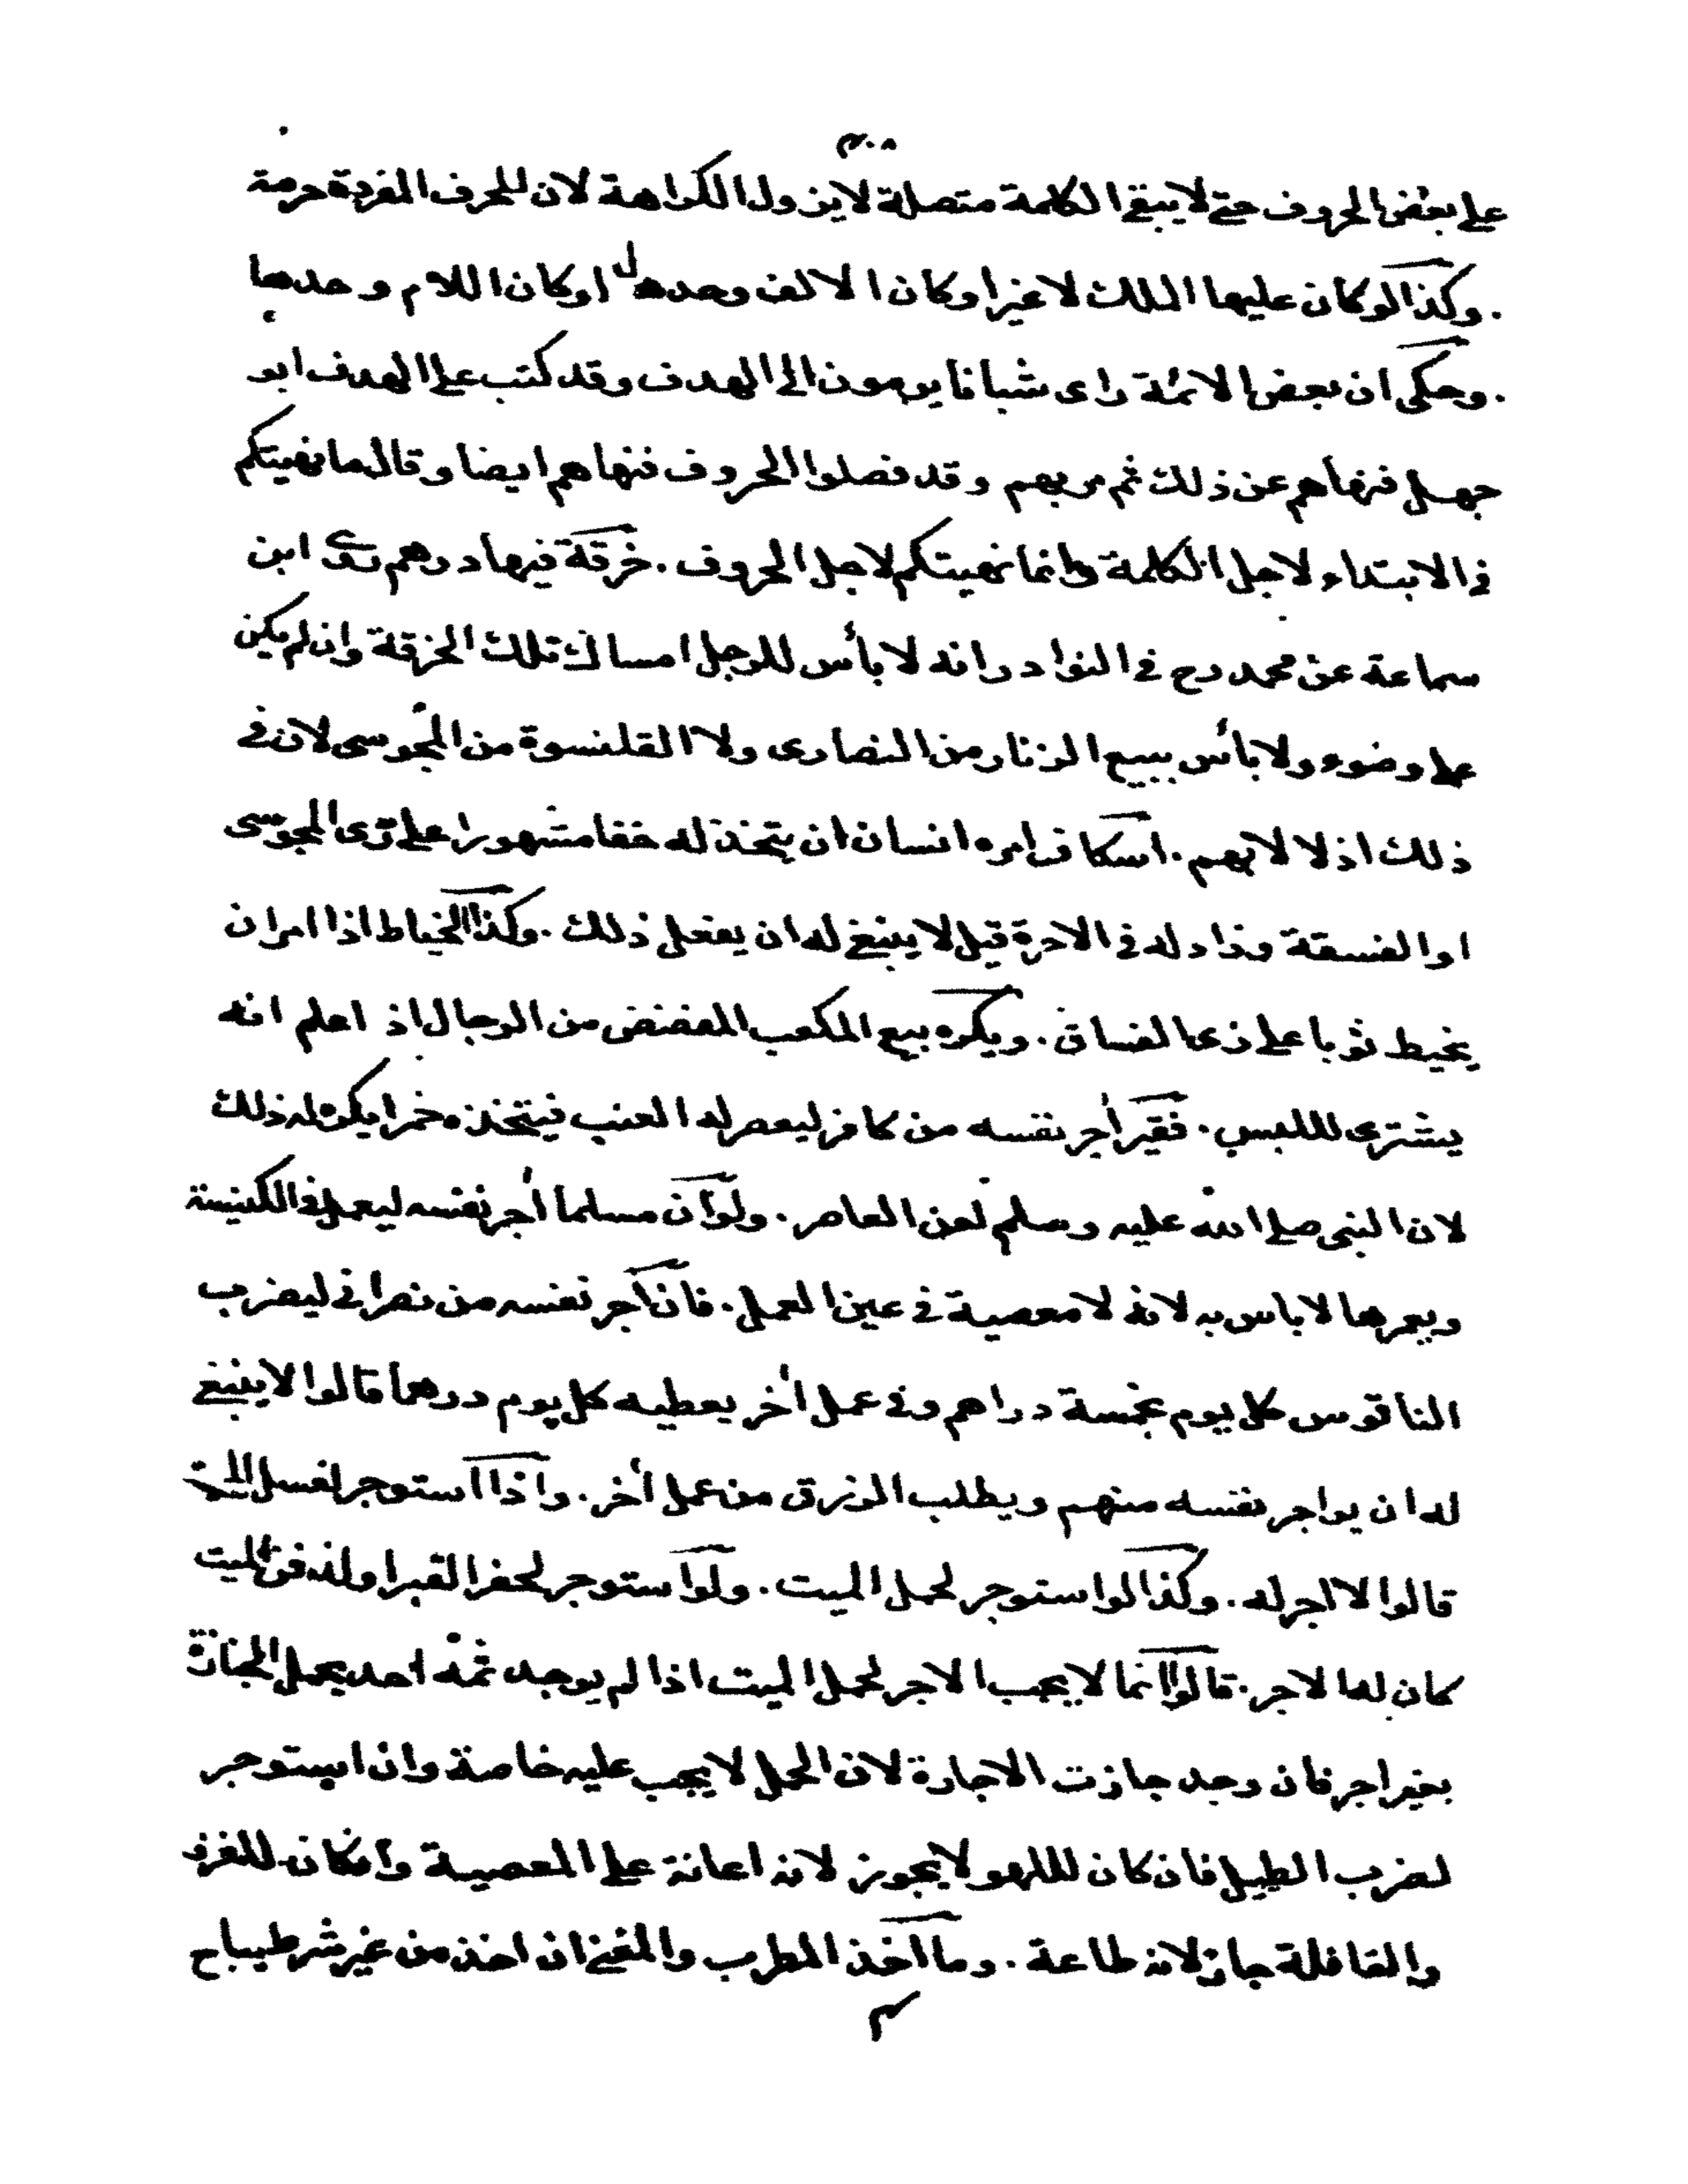 على بعض الحروف حتى لا يبقى الكلمة متصلة لا يزول الكراهة لان للحرف المفردة حرمة
. وكذا لو كان عليها الملك لا غير او كان الالف وحدها او كان اللام وحدها
. وحكى ان بعض الائمة راى شبانا يرمون الى الهدف وقد كتب على الهدف ابو
جهل فنهاهم عن ذلك ثم مر بهم وقد فصلوا الحروف فنهاهم ايضا وقال ما نهيتكم
فى الابتداء لاجل الكلمة وانما نهيتكم لاجل الحروف . خرقة فيها درهم روى ابن
سماعة عن محمد رح فى النوادر انه لا بأس للرجل امساك تلك الخرقة وان لم يكن
على وضوء ولا بأس ببيع الزنار من النصارى ولا القلنسوة من المجوسى لان فى
ذلك اذلالا بهم . اسكاف امره انسان ان يتخذ له خفا مشهورا على زى المجوسى
او الفسقة وزاد له فى الاجرة قيل لا ينبغى له ان يفعل ذلك . وكذا الخياط اذا امر ان
يخيط ثوبا على زى الفساق . ويكره بيع المكعب المفضض من الرجال اذ اعلم انه
يشترى للبس . فقير أجر نفسه من كافر ليعصر له العنب فيتخذه خمرا يكره له ذلك
لان النبى صلى الله عليه وسلم لعن العاصر . ولو ان مسلما أجر نفسه ليعمل فى الكنيسة
ويعمرها لا باس به لانه لا معصية فى عين العمل . فان آجر نفسه من نصرانى ليضرب
الناقوس كل يوم بخمسة دراهم وفى عمل أخر يعطيه كل يوم درهما قالوا لا ينبغى
له ان يواجر نفسه منهم ويطلب الرزق من عمل أخر . واذا استوجر لغسل الميت
قالوا لا اجر له . وكذا لو استوجر لحمل الميت . ولو استوجر لحفر القبر او لدفن الميت
كان لها لاجر . قالوا انما لا يجب الاجر لحمل الميت اذا لم يوجد ثمه احد يحمل الجنازة
بغير اجر فان وجد جازت الاجارة لان الحمل لا يجب عليه خاصة وان استوجر
لضرب الطبل فان كان للهو لا يجوز لانه اعانة على المعصية وان كان للغزو
والقافلة جاز لانه طاعة . وما اخذ المطرب والمغنى ان اخذ من غير شرط يباح